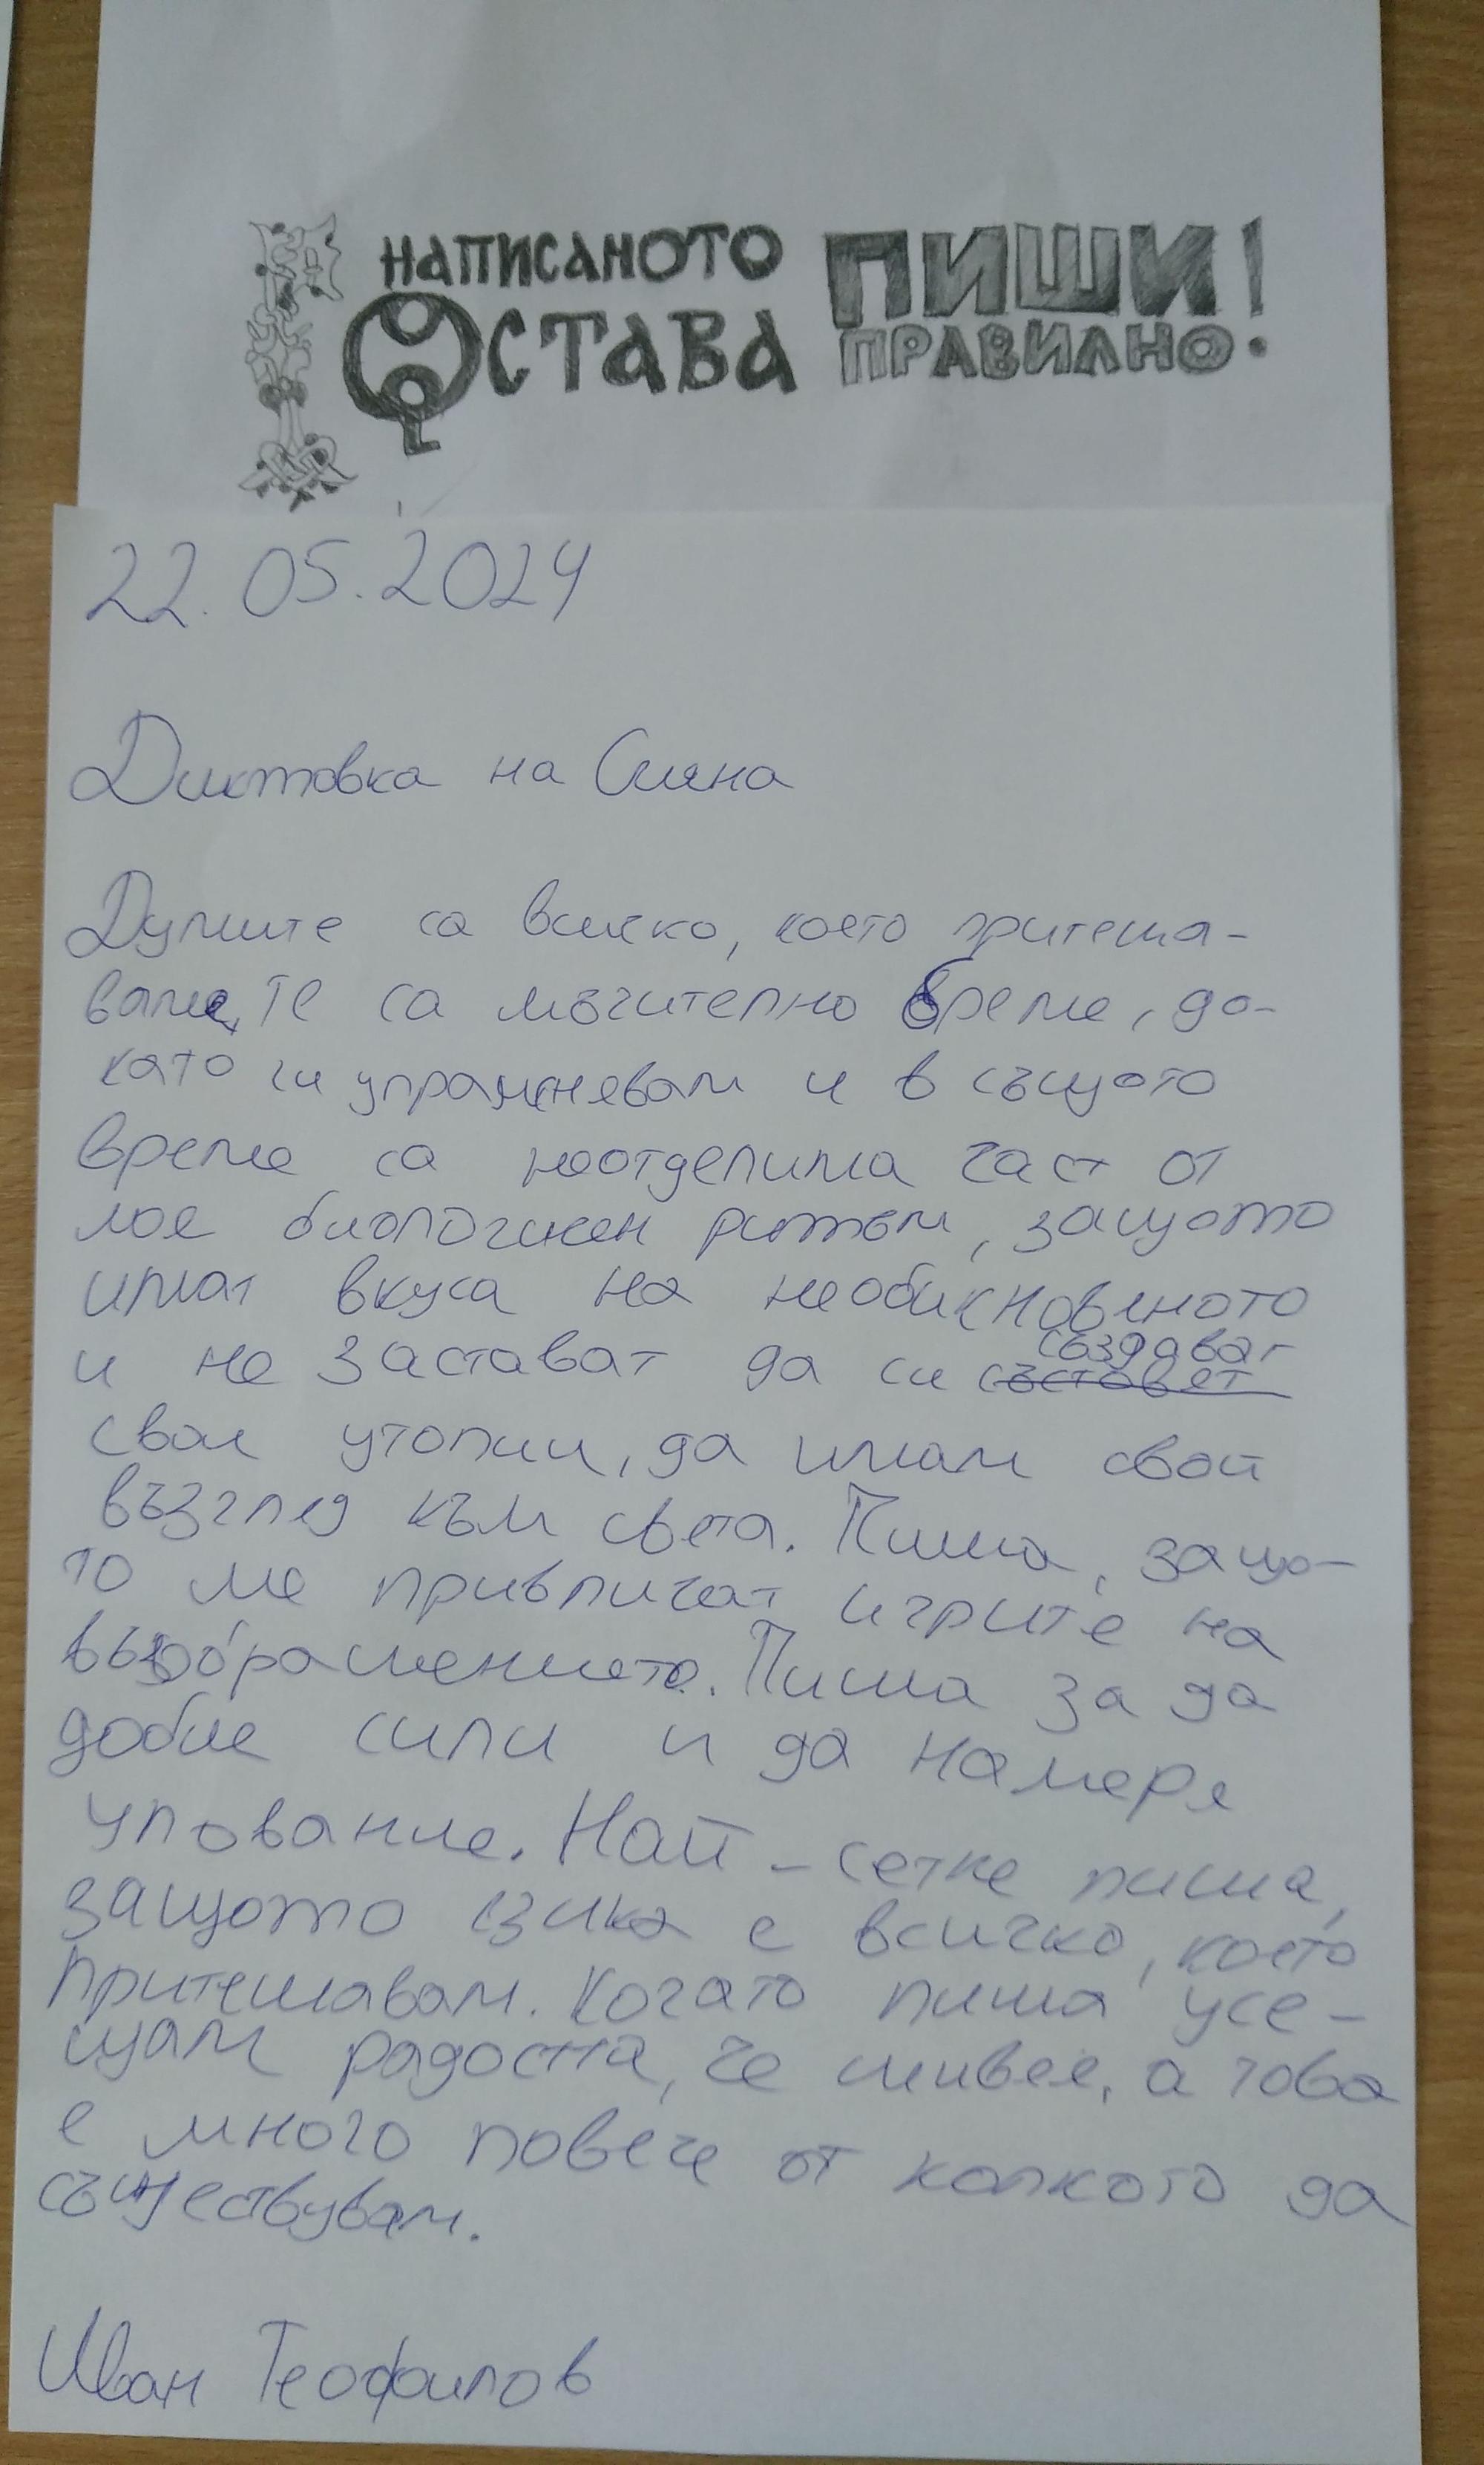 НАПИСАНОТО
ОСТАВА
ПИШИ!
ПРАВИЛНО.
22.05.2024
Диктовка на Сияна
Думите са всичко, което притежа-
ваме, Те са мъчително време, до-
като ги упражнявам и в същото
време са неотделима част от
моя биологичен ритъм, защото
имат вкуса на необикновеното
и не застават да си създават
свои утопии, да имам свой
възглед към света. Пиша, защо-
то ме привличат игрите на
въображението. Пиша за да
добия сили и да намеря
упование. Най-сетне пиша,
защото езика е всичко, което
притежавам. Когато пиша усе-
щам радостта, че живея, а това
е много повече от колкото да
съществувам.
Иван Теофилов